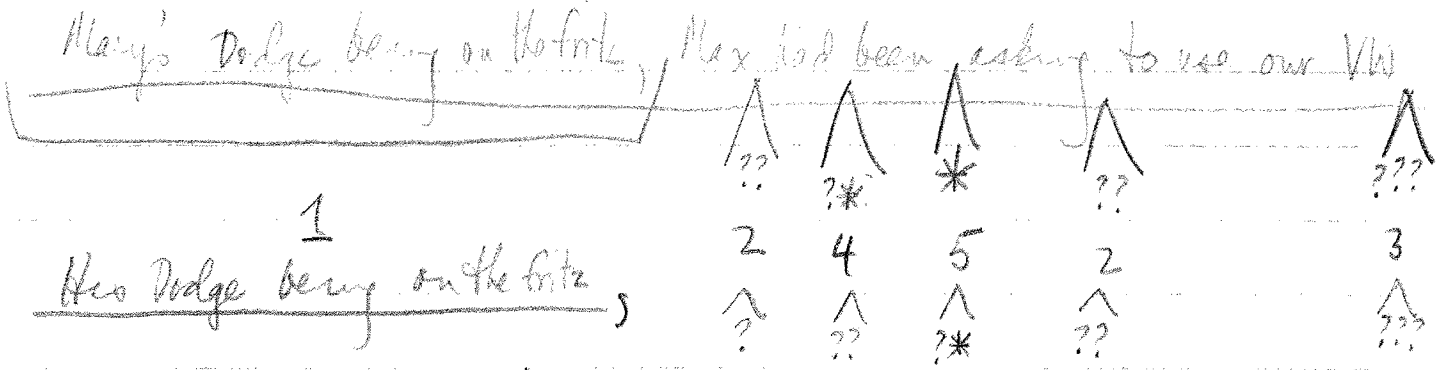 Mary's Dodge being on the fritz, Max had been asking to use our VW
?? ?* * ?? ???
1 2 4 5 2 3
His Dodge being on the fritz, ? ?? ?* ?? ???